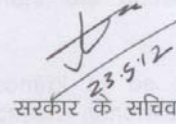 23.5.12
सरकार के सचिव